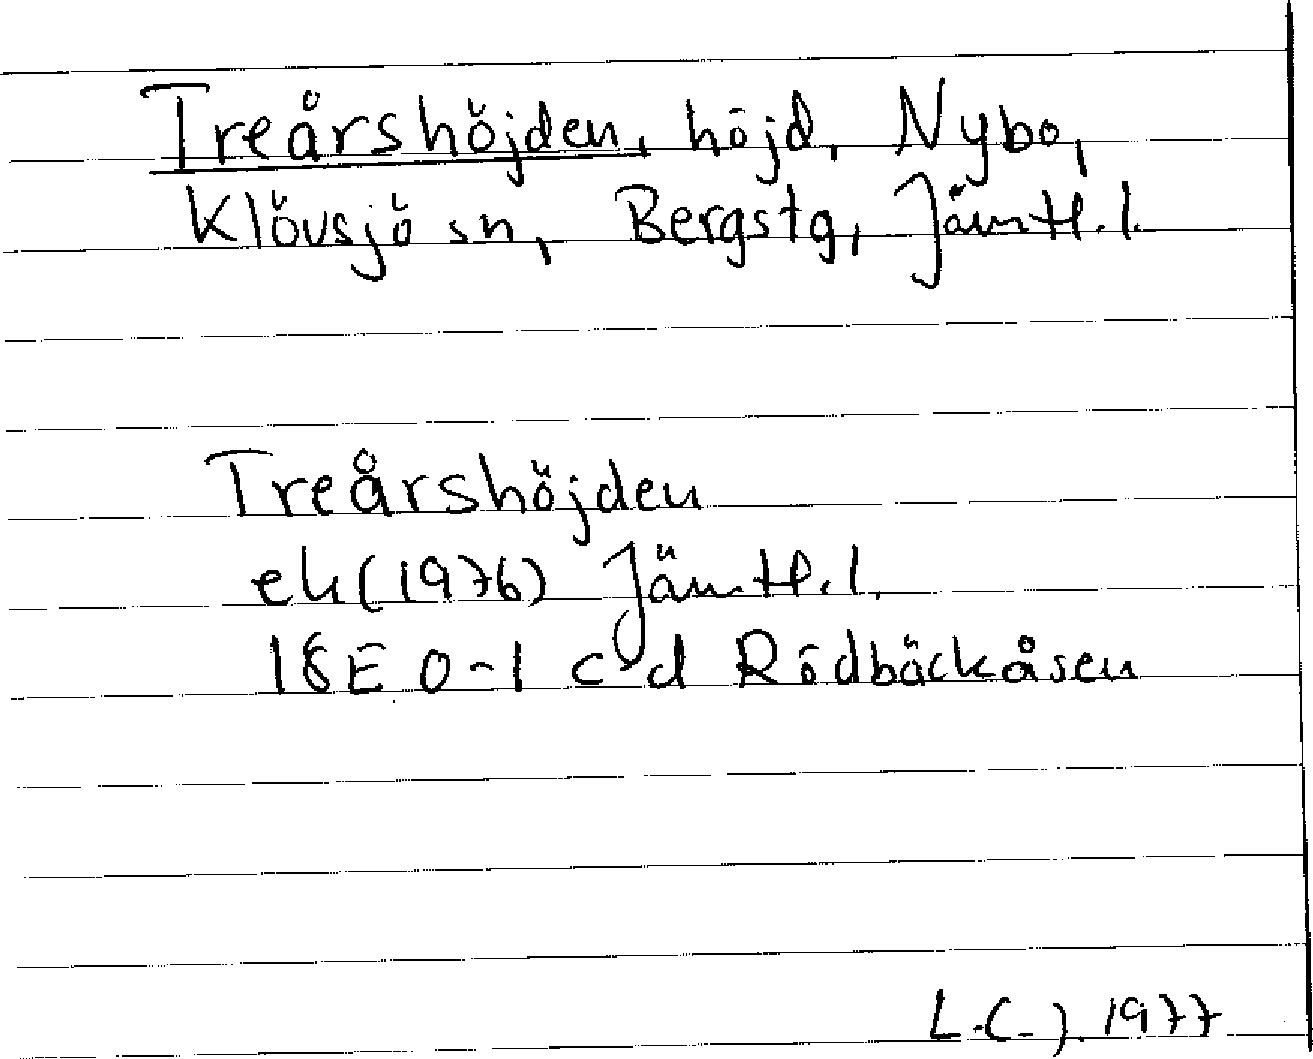 Treårshöjden, höjd, Nybo,
Klövsjö sn, Bergstg, Jämtl. l.
Treårshöjden
ek (1976) Jämtl. l.
18E 0-1 c-d Rödbäckåsen
L.C-J. 1977